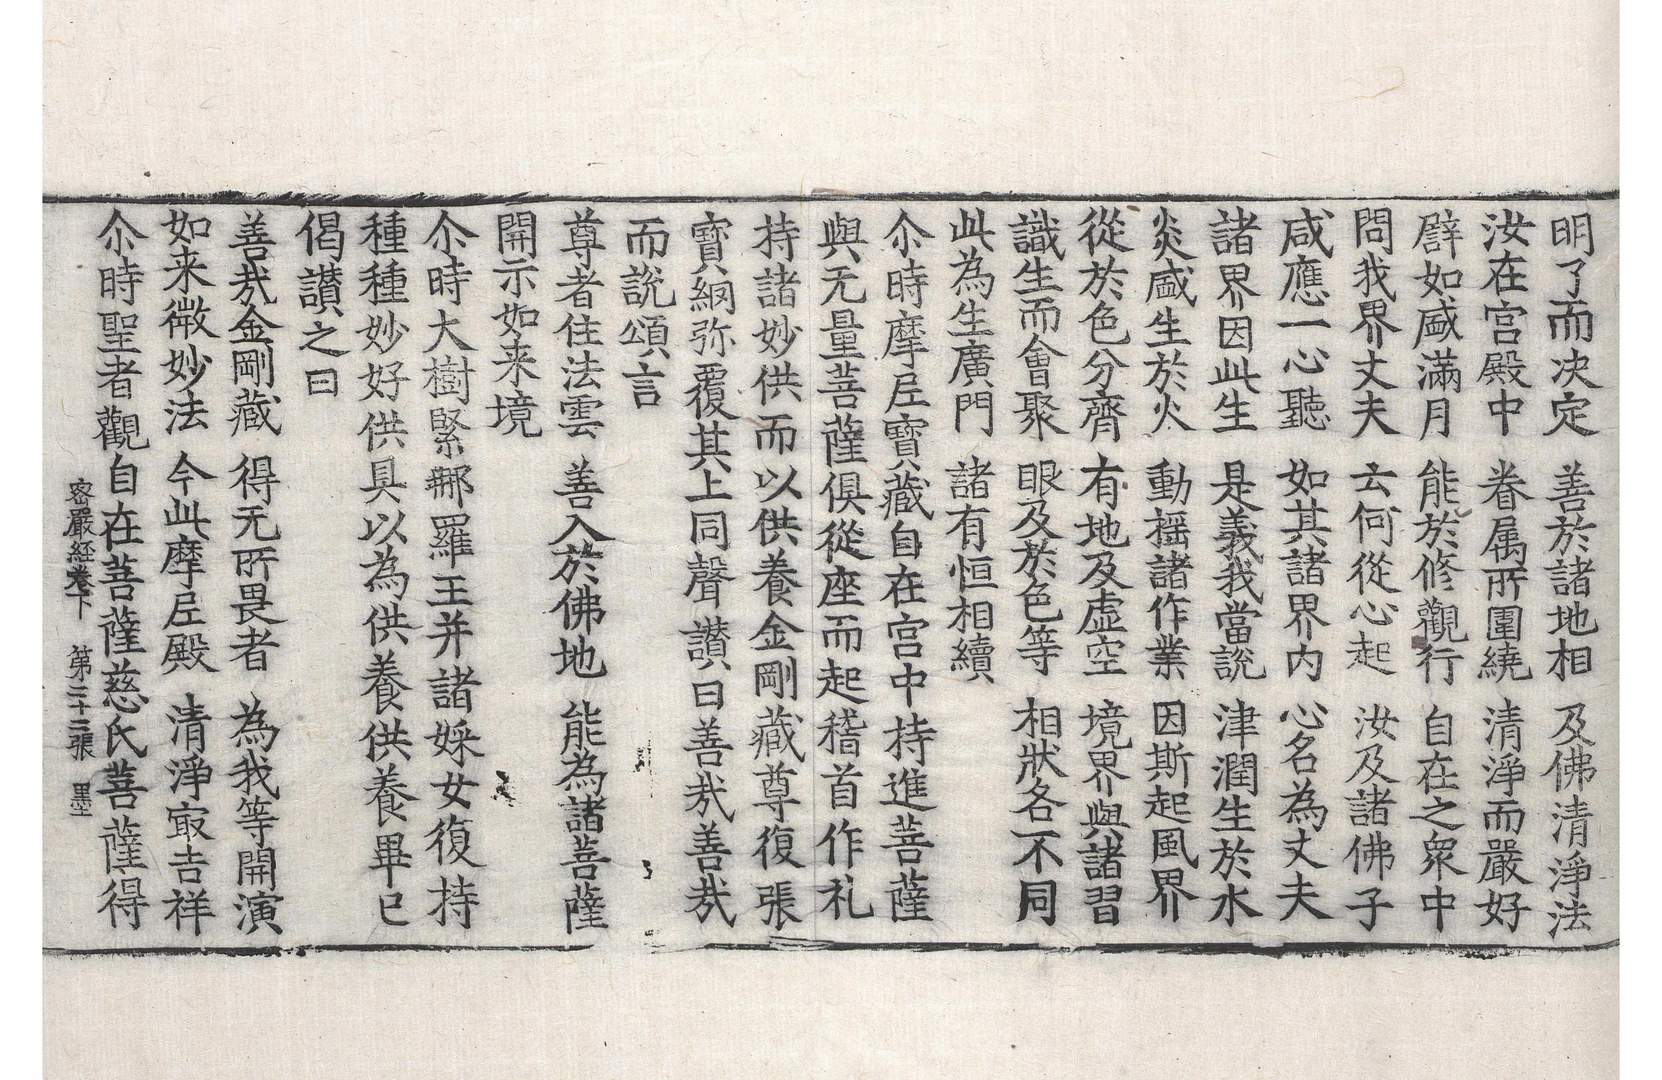 明了而决定 善於諸地相 及佛清淨法
汝在宫殿中 眷属所圍繞 清淨而嚴好
譬如盛滿月 能於修觀行 自在之衆中
問我界丈夫 云何從心起 汝及諸佛子
咸應一心聽 如其諸界内 心名為丈夫
諸界因此生 是義我當説 津潤生於水
炎盛生於火 動摇諸作業 因斯起風界
從於色分齊 有地及虚空 境界與諸習
識生而會聚 眼及於色等 相狀各不同
此為生廣門 諸有恒相續
尒時摩尼寶藏自在宫中持進菩薩
與无量菩薩俱從座而起稽首作礼
持諸妙供而以供養金剛藏尊復張
寶網弥覆其上同聲讃曰善哉善哉
而説頌言
尊者住法雲 善入於佛地 能為諸菩薩
開示如来境
尒時大樹緊那羅王并諸婇女復持
種種妙好供具以為供養供養畢已
偈讃之曰
善哉金剛藏 得无所畏者 為我等開演
如来微妙法 今此摩尼殿 清淨㝡吉祥
尒時聖者觀自在菩薩慈氏菩薩得
密嚴経卷下 第二十二張 墨